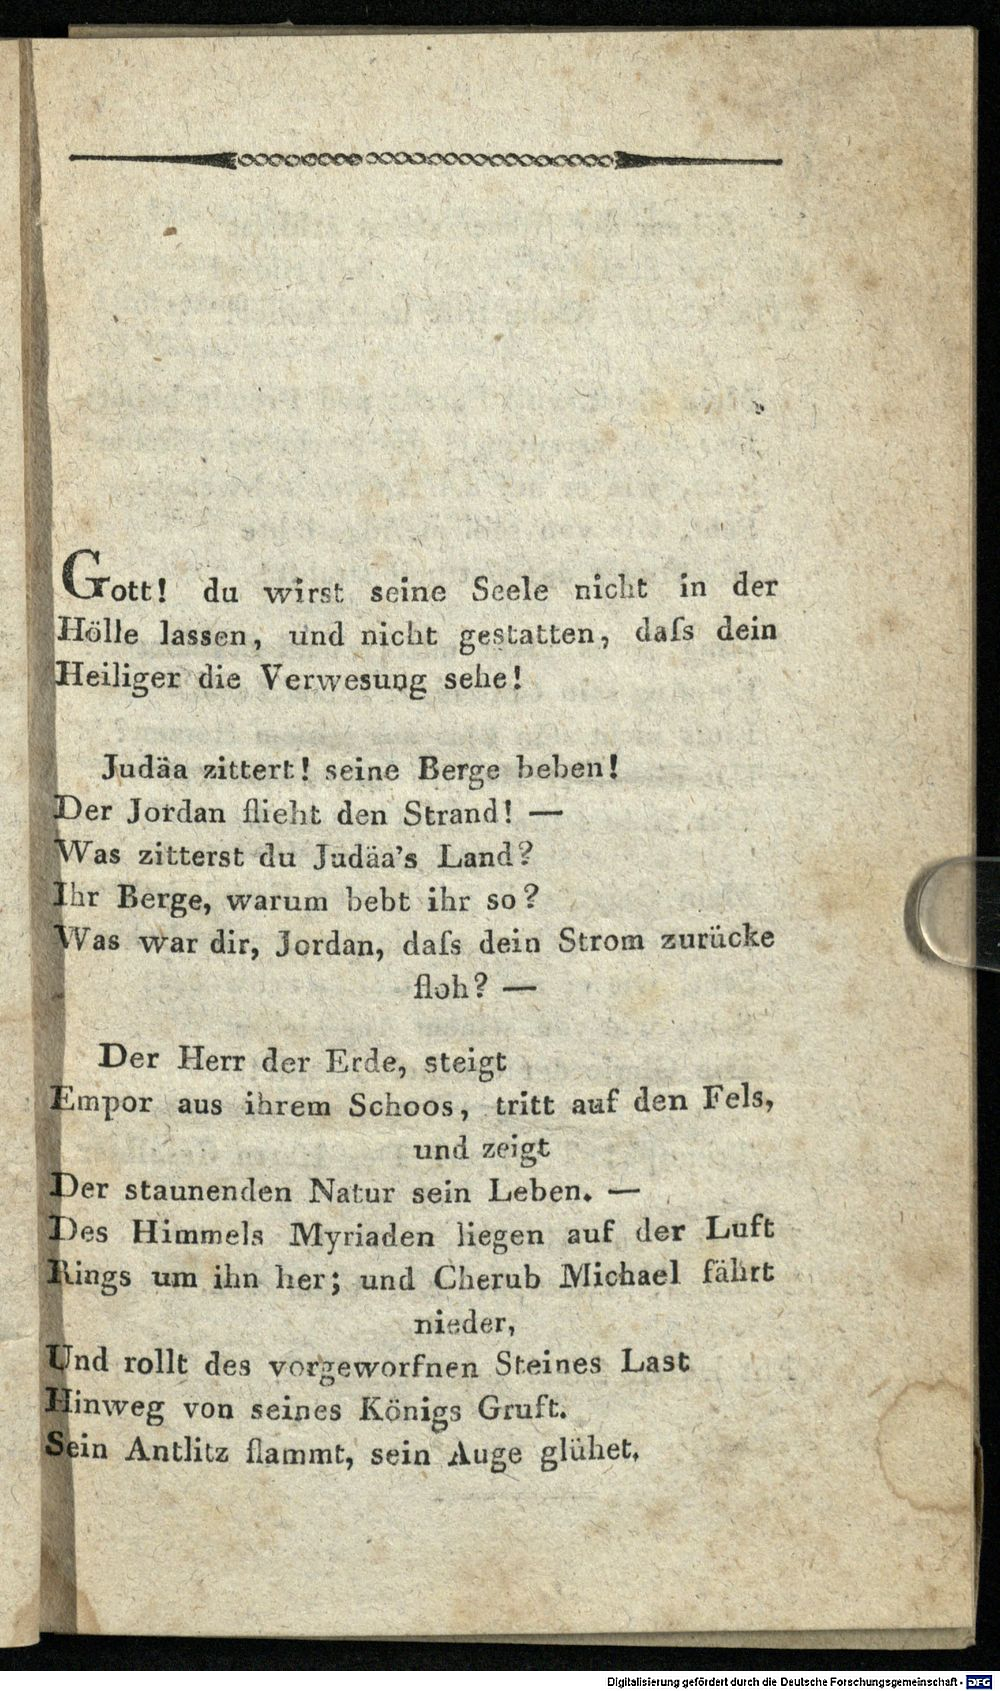 Gott! du wirst seine Seele nicht in der
Hölle lassen, und nicht gestatten, daſs dein
Heiliger die Verwesung sehe!
Judäa zittert! seine Berge beben!
Der Jordan flieht den Strand! —
Was zitterst du Judäa's Land?
Ihr Berge, warum bebt ihr so?
Was war dir, Jordan, daſs dein Strom zurücke
floh? —
Der Herr der Erde, steigt
Empor aus ihrem Schoos, tritt auf den Fels,
und zeigt
Der staunenden Natur sein Leben. —
Des Himmels Myriaden liegen auf der Luft
Rings um ihn her; und Cherub Michael fährt
nieder,
Und rollt des vorgeworfnen Steines Last
Hinweg von seines Königs Gruft.
Sein Antlitz flammt, sein Auge glühet.
Digitalisierung gefördert durch die Deutsche Forschungsgemeinschaft - DFG